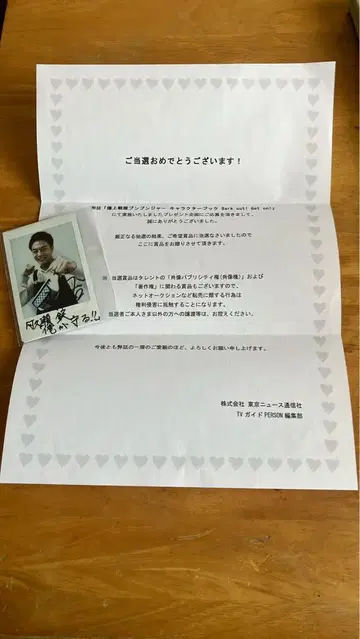 ご当選おめでとうございます！
弊誌「爆上戦隊ブンブンジャー キャラクターブック out! Get on!」
にて実施いたしましたプレゼント企画にご応募を頂きまして、
誠にありがとうございました。
厳正なる抽選の結果、ご希望賞品に当選なさいましたので
ここに賞品をお贈りさせて頂きます。
※ 当選賞品はタレントの「肖像パブリシティ権(肖像権)」および
「著作権」に関わる賞品もございますので、
ネットオークションなど転売に類する行為は
権利侵害に抵触することになります。
当選者ご本人さま以外の方への譲渡等は、お控えください。
今後とも弊誌の一層のご愛顧のほど、よろしくお願い申し上げます。
株式会社 東京ニュース通信社
TVガイドPERSON編集部
阿久瀬 錠
俺が守る!!